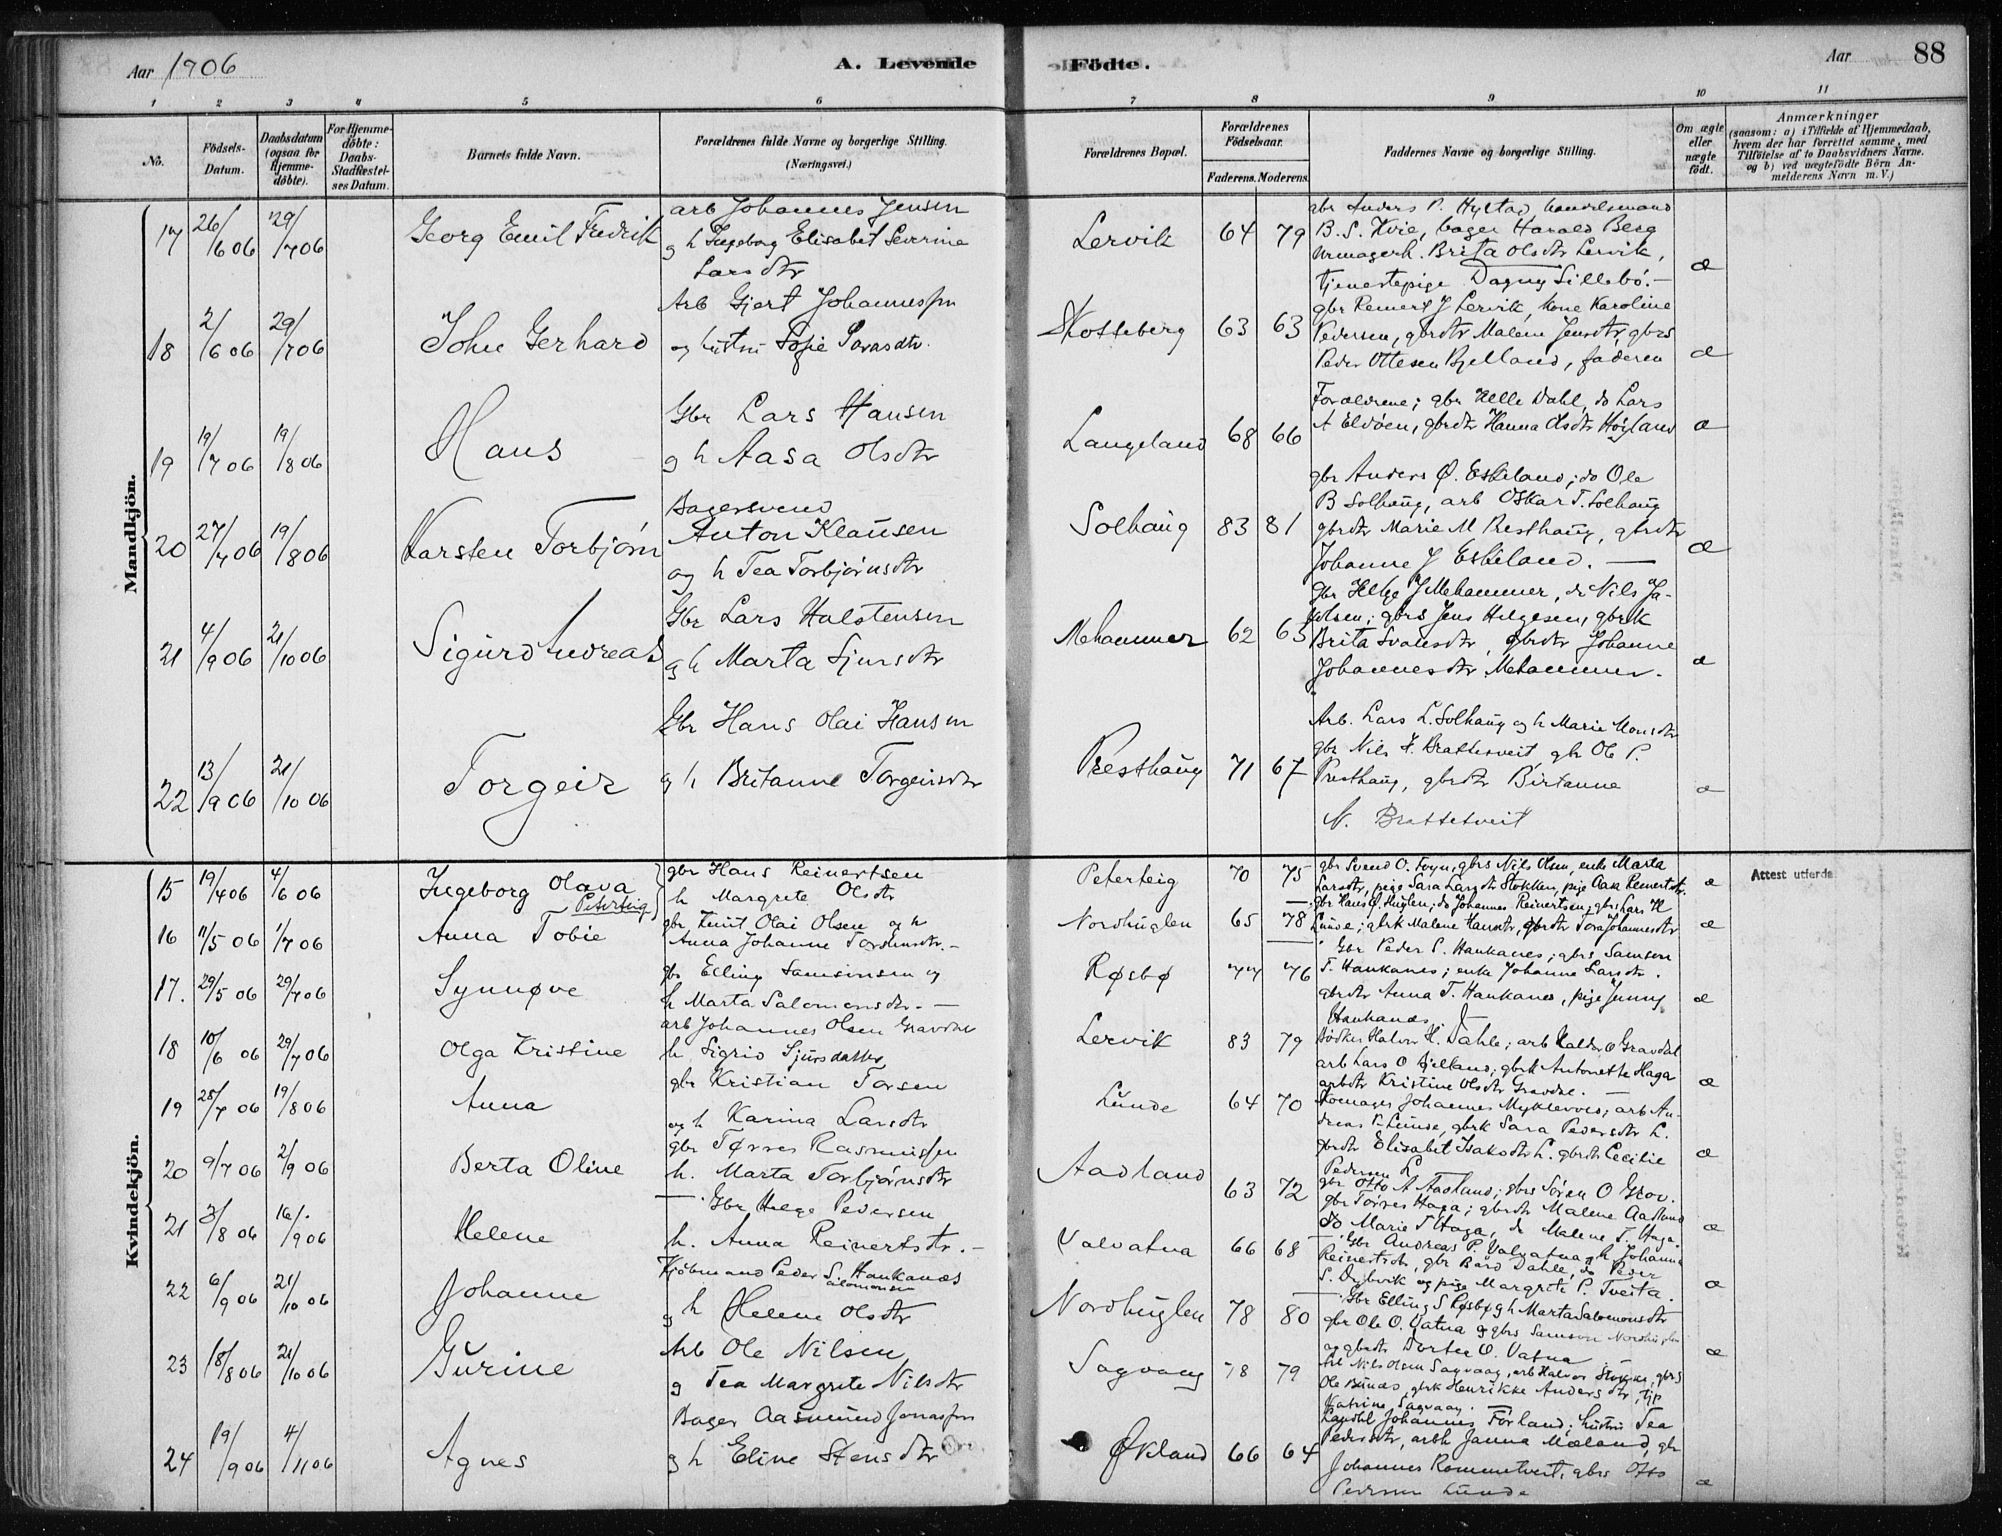 Aar 1906
A. Levende
Födte.
Aar
88
1 2 3 4 5 6 7 8 9 10 11
No.
Födsels-Datum.
Daabsdatum (ogsaa for Hjemme-döbte).
For Hjemme-döbte: Daabs-Stadfæstel-ses Datum.
Barnets fulde Navn.
Forældrenes fulde Navne og borgerlige Stilling. (Næringsvei.)
Forældrenes Bopæl.
Forældrenes Födselsaar.
Faderens. Moderens.
Faddernes Navne og borgerlige Stilling.
Om ægte eller uægte födt.
Anmærkninger
(saasom: a) i Tilfælde af Hjemmedaab, hvem der har forrettet samme, med Tilföielse af to Daabsvidners Navne. og b) ved uægtefödte Börn An-melderens Navn m. V.)
Mandkjön.
17 26/6 06 29/7 06 Georg Emil Fredrik
arb Johannes Jensen
og h Ingeborg Elisabet Severine
Larsdtr
Lervik 64 79
gbr Anders P. Hystad handelsmand
B. S. Hvie, bager Harald Berg
urmagerh. Brita Olsdtr Lervik,
tjenestepige Dagny Sillebö.-
æ
18 2/6 06 29/7 06 John Gerhard
Arb Gjert Johannessen
og hustru Sofie Larasdtr.
Skotteberg 63 63
gbr Reinert J Lervik, kone Karoline
Pedersen, gbrdtr Malene Jensdtr, gbrs
Peder Ottesen Bjelland, faderen
æ
19 19/7 06 19/8 06 Hans
Gbr Lars Hansen
og h Aasa Olsdtr
Langeland 68 66
Forældrene; gbr Helle Dahl, do Lars
A Eldöen, gbrdtr Hanna Olsdtr Høyland
æ
20 27/7 06 19/8 06 Karsten Torbjörn
Bagersvend
Anton Klausen
og h Tea Torbjørnsdtr
Solhaug 83 81
gbr Anders Ø. Eskeland; do Ole
B Solhaug, arb Oskar T. Solhaug
gbrdtr Marie M Presthaug, gbrdtr
Johanne J Eskeland. —
æ
21 4/9 06 21/10 06 Sigurd Andreas
Gbr Lars Halstensen
og h Marta Sjursdtr
Mehammer 62 65
Gbr Helge J Mehammer, do Nils Ja-
kobsen; gbrs Jens Helgesen, gbrk
Brita Svalesdtr, gbrdtr Johanne
Johannesdtr Mehammer.
æ
22 13/9 06 21/10 06 Torgeir
Gbr Hans Olai Hansen
og h Britanne Torgeirsdtr
Presthaug 71 67
Arb. Lars L. Solhaug og h Marie Monsdtr
gbr Nils H. Brattesveit gbr Ole P.
Presthaug, gbrdtr Birtanne
N. Brattetveit
æ
Kvindekjön.
15 19/4 06 4/6 06 Ingeborg Olava
Peterteig
gbr Hans Reinertsen
h Margrete Olsdtr
Peterteig 70 75
gbr Svend O. Foyn, gbrs Nils Olsen, enke Marta
Larsdtr, pige Sara Larsdtr Stokken, pige Aase Reinertsdtr.
æ
Attest utferde
16 11/5 06 1/7 06 Anna Tobie
gbr Knut Olai Olsen og h
Anna Johanne Tordensdtr.-
Nordhuglen 65 78
gbr Hans Ø. Huglen; do Johannes Reinertsen; gbrs Lars H
Lunde; gbrk Malene Hansdtr, gbrdtr Tora Johannesdtr
æ
17. 29/5 06 29/7 06 Synnøve
gbr Elling Samsonsen og
h Marta Salomonsdtr. —
Røsbø 77 76
Gbr Peder S. Haukanes; gbrs Samson
T. Haukanes; enke Johanne Larsdtr.
gbrdtr Anna T. Haukanes, pige Jenny
Haukanes
æ
18 10/6 06 29/7 06 Olga Kristine
arb Johannes Olsen Gravdal
h. Sigrid Sjursdatter
Lervik 83 79
Bödker Halvor H. Dahle; arb Halder O Gravdal
arb Lars O Bjelland; gbrk Antonette Haga
arbdtr Kristine Olsdtr Gravdal. —
æ
19 28/7 06 19/8 06 Anna
gbr Kristian Torsen
og h Karina Larsdtr
Lunde 64 70
Skomager Johannes Myklevold; arb An-
dreas K Lunde, gbrk Sara Pedersdtr L.
gbrdtr Elisabet Isaksdtr L. gbrdtr Cecilie
Pedersen L
æ
20 9/7 06 2/9 06 Berta Oline
gbr Tørres Rasmussen
h. Marta Torbjørnsdtr
Aadland 63 72
gbr Otto A Aadland; gbrs Søren O Grov.
gbr Tørres Haga; gbrdtr Malene Aadland
do Marie T Haga, do Malene T. Haga
æ
21 3/8 06 16/9 06 Helene
Gbr Helge Pedersen
h. Anna Reinertsdtr.-
Valvatna 66 68
Gbr Andreas P. Valvatna og h Johanna
Reinertsdtr, gbr Bård Dahle, do Peder
S. Dybvik og pige Margrete P. Tveita.
æ
22 6/9 06 21/10 06 Johanne
Kjöbmand Peder S. Haukanes
Salomonsen
og h Helene Olsdtr
Nordhuglen 78 80
Gbr Elling S Røsbø og h Marta Salomonsdtr
gbr Ole O. Vatna og gbrs Samson Nordhuglen
og gbrdtr Dortea O. Vatna
æ
23 18/8 06 21/10 06 Gurine
Arb Ole Nilsen
og Tea Margrete Nilsdtr
Sagvaag 78 79
Arb Nils Olsen Sagvaag, arb Halvor Stokke, gbrs
Ole Bunæs, gbrk Henrikke Andersdtr, tjp
Katrine Sagvaag.
24 19/9 06 4/11 06 Agnes
Bager Aasmund Jonassen
og h Eline Stensdtr
Økland 66 64
Landhl Johannes Førland; hustru Tea
Pedersdtr, arbk Janna Mæland, gbr
Johannes Rommetveit, gbrs Otto
Pedersen Lunde
æ